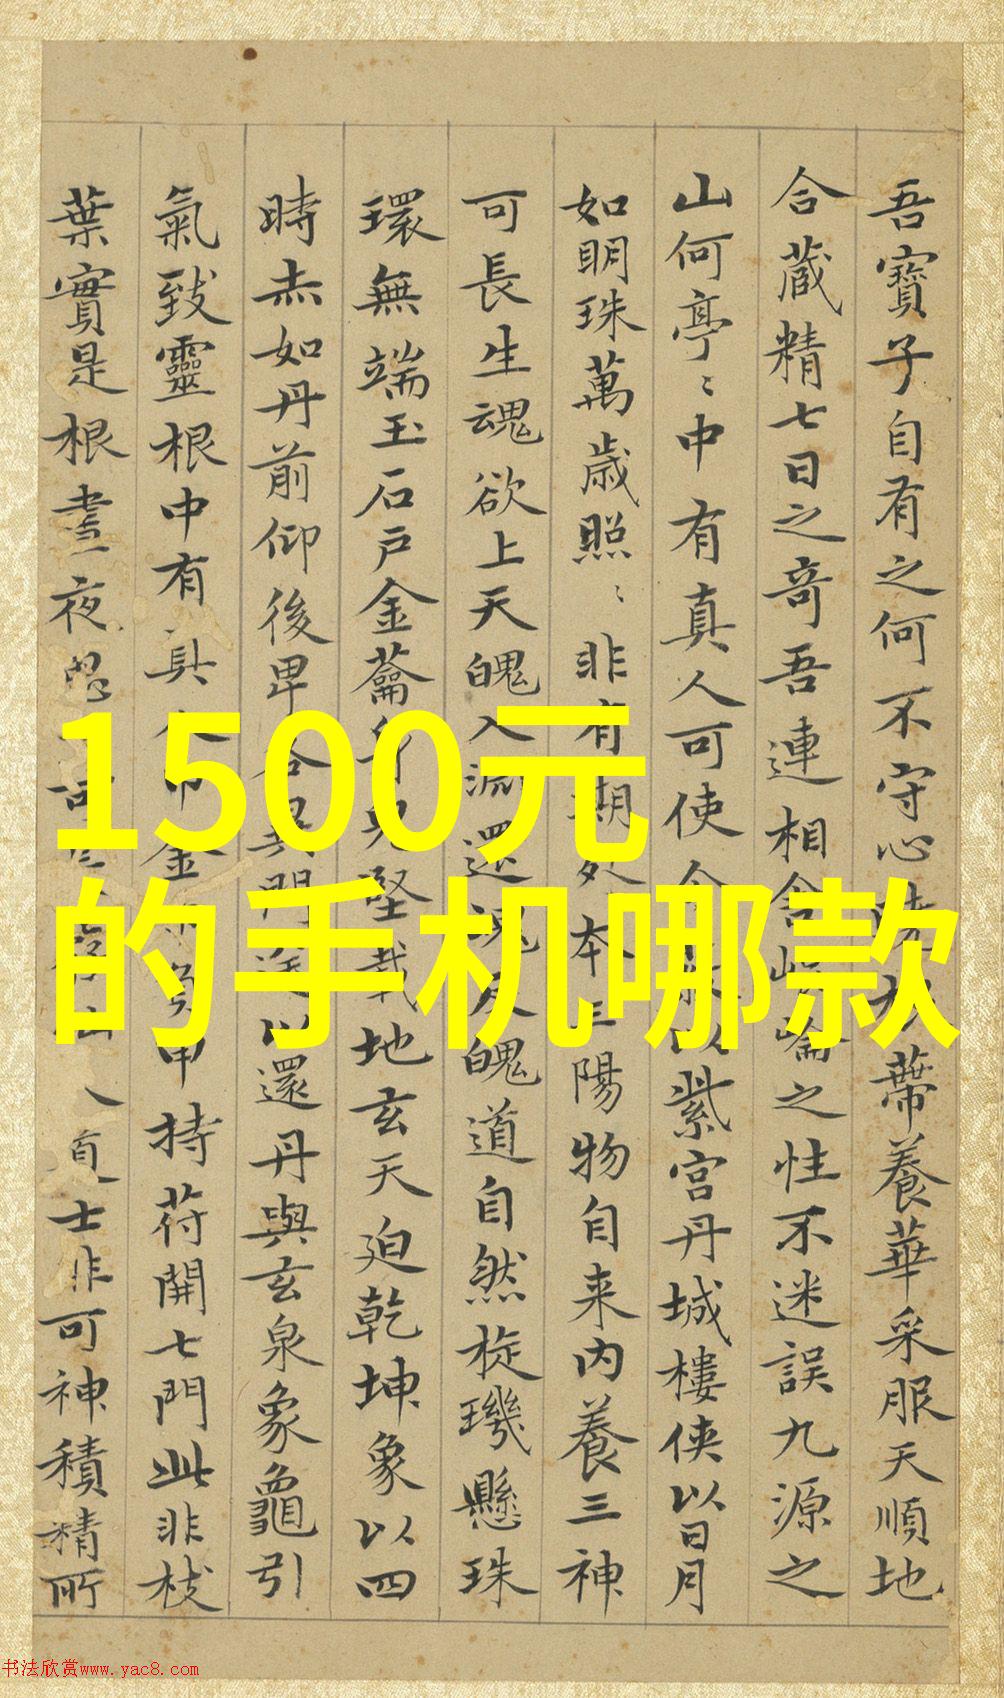 吾寶子自有之何不守心 養華采服天順地
合藏精七日之奇吾連相合崐崘之性不迷誤九源之
山何亭〻中有真人可使令 以紫宮丹城樓俠以日月
如明珠萬歲照〻非有期 本 三陽物自来内養三神
可長生魂欲上天魄入淵還魂反魄道自然旋璣懸珠
環無端玉石戶金籥 堅載地玄天迫乾坤象以四
時赤如丹前仰後卑 門送以還丹與玄泉象龜引
氣致靈根中有真人巾金巾負甲持苻開七門此非枝
葉實是根晝夜思 士非可神積精所
1500元
的手机哪款
书法欣赏www.yac8.com